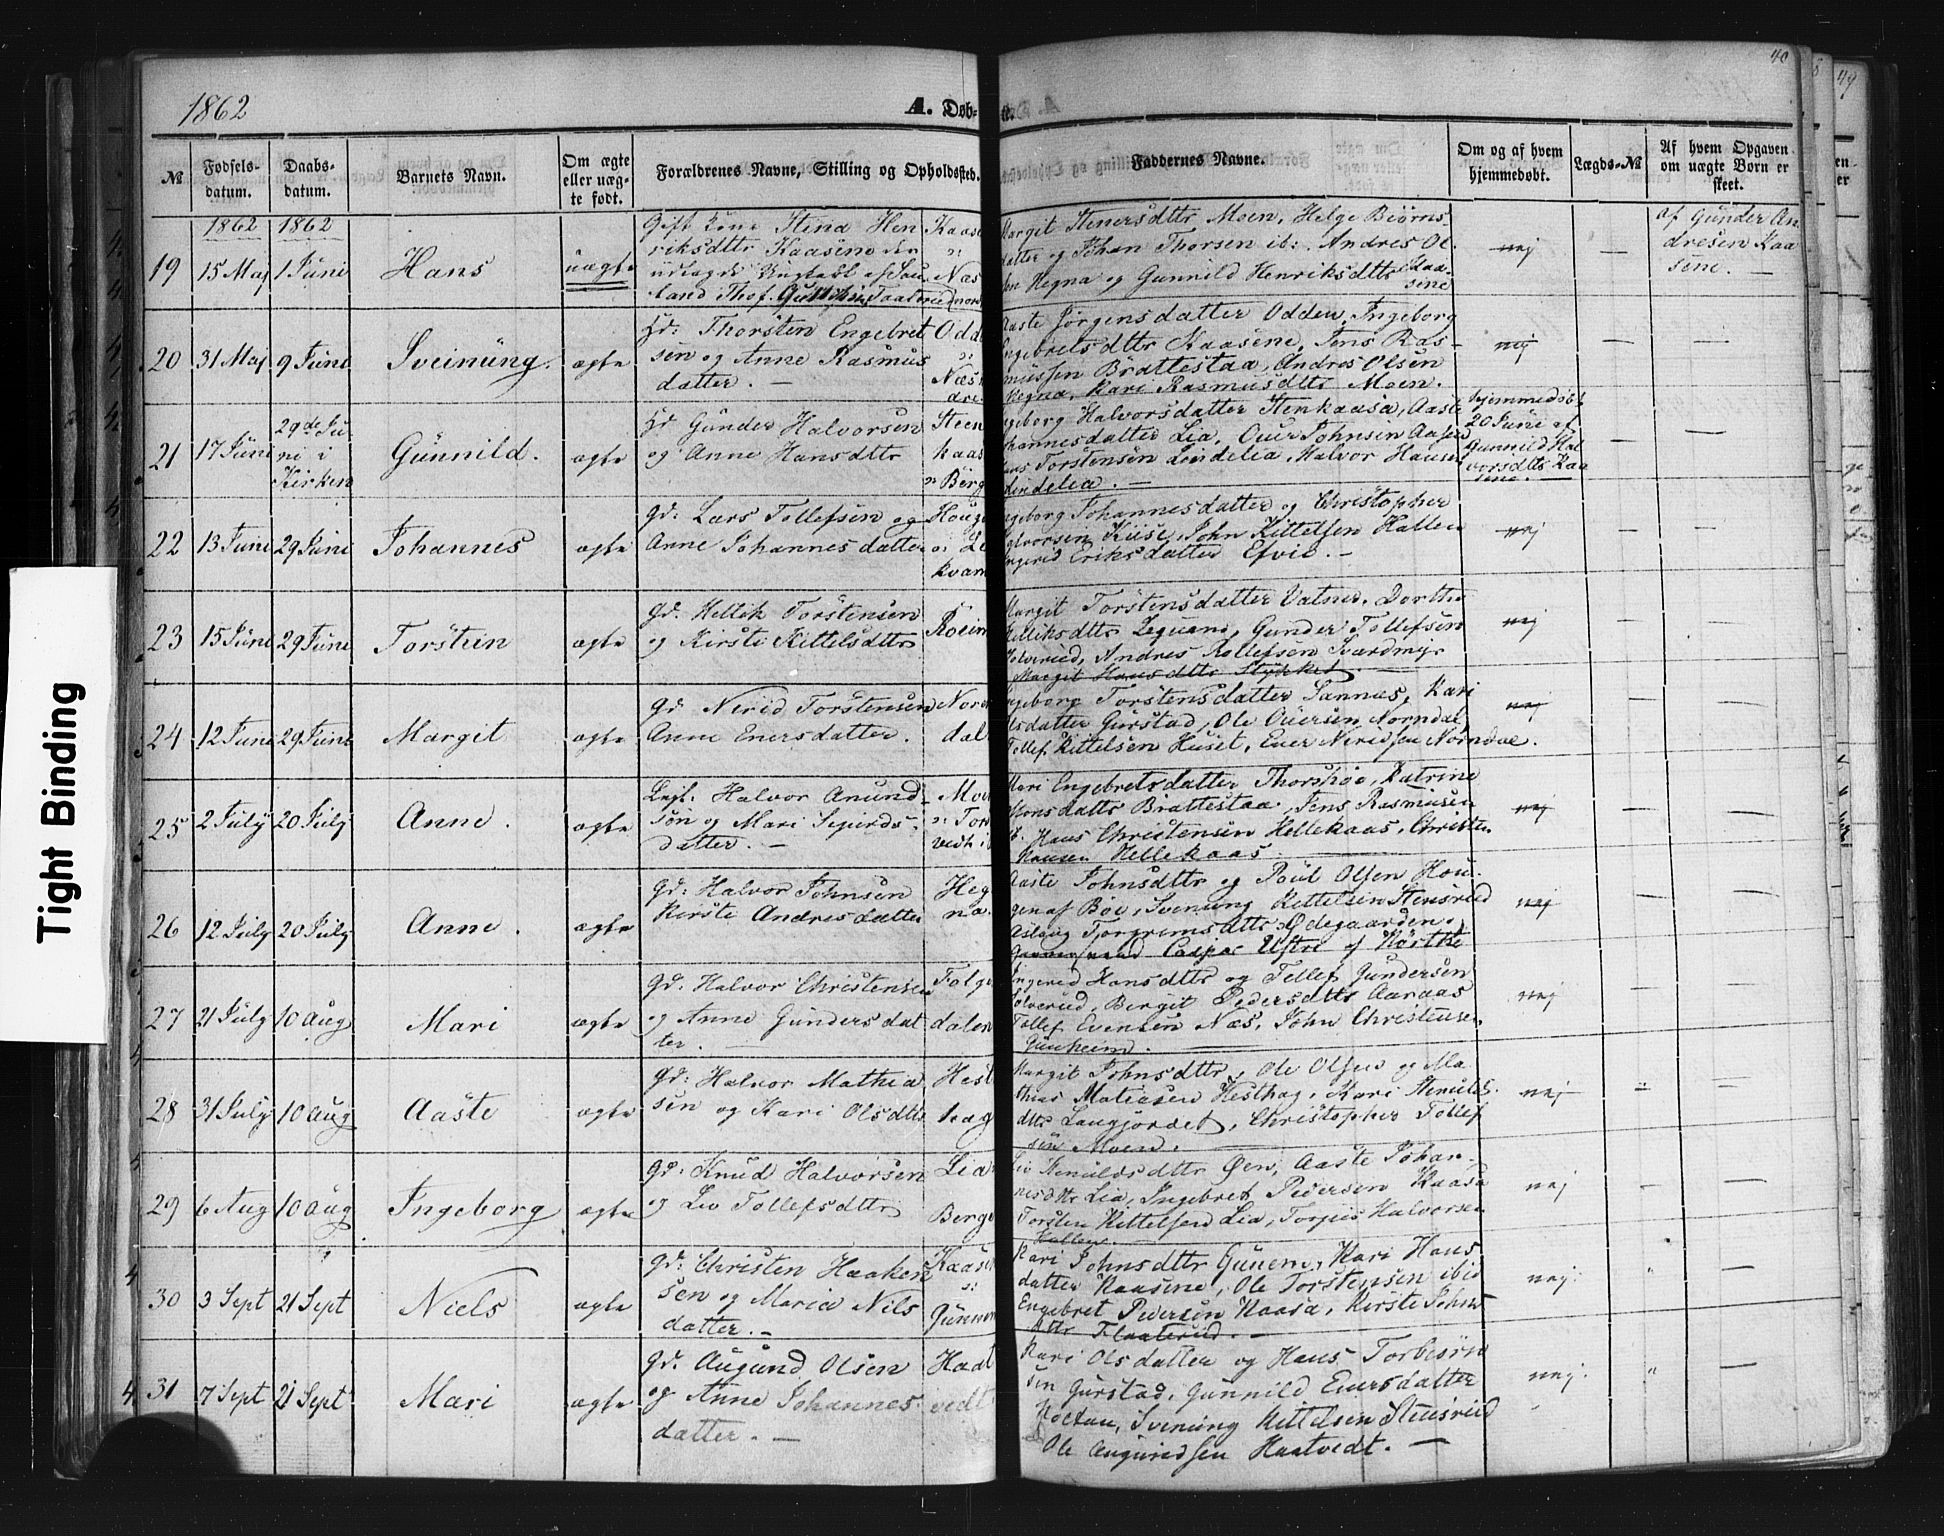 1862
A. Døb-
te.
40
49
№
Fødsels-
datum.
Daabs-
datum.
Barnets Navn.
Om ægte
eller uæg-
te født.
Forældrenes Navne, Stilling og Opholdssted.
Faddernes Navne.
Om og af hvem
hjemmedøbt.
Lægds-№
Af hvem Opgaven
om uægte Børn er
skeet.
1862 1862
19 15 Maj 1 Juni Hans uægte
Gift Kone Stina Hen
riksdttr Kaasene den
udlagde Ungkarl af Sau
land Thof.
Margit Stenersdttr Moen, Helge Biørns
datter og Johan Thorsen ib: Andres Ol
sen Hegna og Gunnild Henriksdttr Kaa-
sene
nej —
af Gunder An
dresen Kaa
sene. —
20 31 Maj 9 Juni Sveinung. ægte
Thorsten Engebret
sen og Anne Rasmus
datter. —
Aaste Jørgensdatter Odden, Ingeborg
Engebretsdttr Kaasene, Jens Ras-
mussen Brattestaa, Andres Olsen
Hegna, Kari Rasmusdttr Moen.
nej — —
21 17 Juni 29de Ju
ni i
Kirken
Gunnild. ægte
Gunder Halvorsen
og Anne Hansdttr
Steen
kaas
Ingeborg Halvorsdatter Stenkaasa, Aaste
Johannesdatter Lia, Ouer Johnsen Aasen
Hans Torstensen Lindelia, Halvor Hansen
Lindelia. —
hjemmedøbt
20 Juni af
Gunnild Hal
vorsdttr Kaa
sene. —
— —
22 13 Juni 29 Juni Johannes ægte
Gd: Lars Tollefsen og
Anne Johannesdatter
Ingeborg Johannesdatter og Christopher
Halvorsen Kiise, John Kittelsen Hallen
Ingerid Eriksdatter Efvie. —
nej — —
23 15 Juni 29 Juni Torstein ægte
Gd. Kellek Torstensen
og Kirste Kittelsdttr
Margit Torstensdatter Vatnes, Dorthe
Gunder Tollefsen
Andres Rollefsen Sværdmyr
Margit Hansdttr Stykket. —
nej — —
24 12 Juni 29 Juni Margit ægte
Gd. Nerid Torstensen
Anne Enersdatter.
Norn
dal
Ingeborg Torstensdatter Sannes, Kari
Olsdatter Gurstad, Ole Ouersen Norndal
Tollef Kittelsen Huset, Ener Neridsen Norndal.
nej — —
25 2 July 20 July Anne. ægte
Halvor Anund-
søn og Mari Sigurds-
datter. —
Mari Engebretsdatter Thorshoe, Katrine
Monsdattr Brattestaa, Jens Rasmusen
ib. Hans Christensen Hellekaas, Christen
Hansen Hellekaas
nej — —
26 12 July 20 July Anne. ægte
Gd: Halvor Johnsen
Kirste Andresdatter
Heg
na.
Aaste Johnsdttr og Poul Olsen Hou-
gen af Bøe, Svenung Kittelsen Stensrud
Aslaug Torgrimsdttr Ødegaarden,
nej — —
27 21 July 10 Aug Mari ægte
Gd: Halvor Christensen
og Anne Gundersdat
ter.
dalen
Ingerid Hansdttr og Tellef Gundersen
Birgit Pedersdttr Aaraas
Tollef Evensen Næs, John Christensen
Gunheim.
nej — —
28 31 July 10 Aug Aaste ægte
Gd: Halvor Mathia
sen og Kari Olsdttr
Hest
hag
Margit Johnsdttr, Ole Olsen og Ma
thias Matiasen Hesthag, Kari Stenuls
dttr Langjordet, Christopher Tollef
sen Moen.
nej " —
29 6 Aug 10 Aug Ingeborg ægte
Gd: Knud Halvorsen
og Liv Tollefsdttr
Lia
Berge
Liv Stenulsdttr Øen, Aaste Johan-
nesdttr Lia, Ingebret Pedersen Kaasa
Torsten Kittelsen Lia, Torgus Halvorsen
nej — —
30 3 Sept 21 Sept Niels ægte
Gd: Christen Haaken
sen og Maria Nils
datter. —
Kaasen
Kari Johnsdttr Gunem, Kari Hans
datter Kaasene, Ole Torstensen ibid
Engebret Pedersen Kaasa, Kirste Johns
dttr Flaaterud. —
nej. " —
31 7 Sept 21 Sept Mari ægte
Gd. Augund Olsen
og Anne Johannes
datter. —
Haat
vedt
Kari Olsdatter og Hans Torbiørn
sen Gurstad, Gunnild Enersdatter
Svenung Kittelsen Stensrud
Ole Augundsen Haatvedt. —
nej. " —
Tight Binding